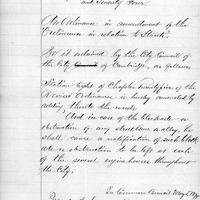 and Seventy Four
An Ordinance in amendment of the
"Ordinance in relation to Streets"
Be it ordained by the City Council of
the City of Cambridge, as follows
Section Eight of Chapter Twenty five of the
Revised Ordinances is hereby amended by
adding thereto the words
And in case of the blockade or
obstruction of any street lane or alley, he
shall cause a notification of such block
ade or obstruction to be left at each
of the several engine houses throughout
the City.
In Common Council May